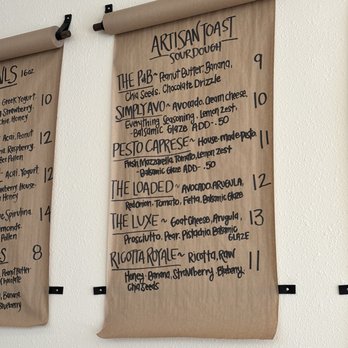 WLS 16oz
Greek Yogurt
Strawberry
Honey
10
Acai, Peanut
12
Raspberry
Pollen
Acai, Yogurt
12
Blueberry House-
Honey
Spirulina
14
Almonds
Pollen
LS
8
Peanut Butter
Banana
Blueberry
ARTISAN TOAST
SOURDOUGH
THE P&B~ Peanut Butter, Banana, 9
Chia Seeds, Chocolate Drizzle
SIMPLY AVO~ Avocado, Cream cheese, 10
Everything Seasoning, Lemon Zest
-Balsamic Glaze ADD- .50
PESTO CAPRESE~ House-made Pesto, 11
Fresh Mozzarella, Tomato, Lemon Zest
-Balsamic Glaze ADD- .50
THE LOADED~ AVOCADO, ARUGULA, 12
Red Onion, Tomato, Fetta, Balsamic Glaze
THE LUXE~ Goat Cheese, Arugula, 13
Prosciutto, Pear, Pistachio, Balsamic
GLAZE
RICOTTA ROYALE~ Ricotta, Raw 11
Honey, Banana, Strawberry, Blueberry,
Chia Seeds